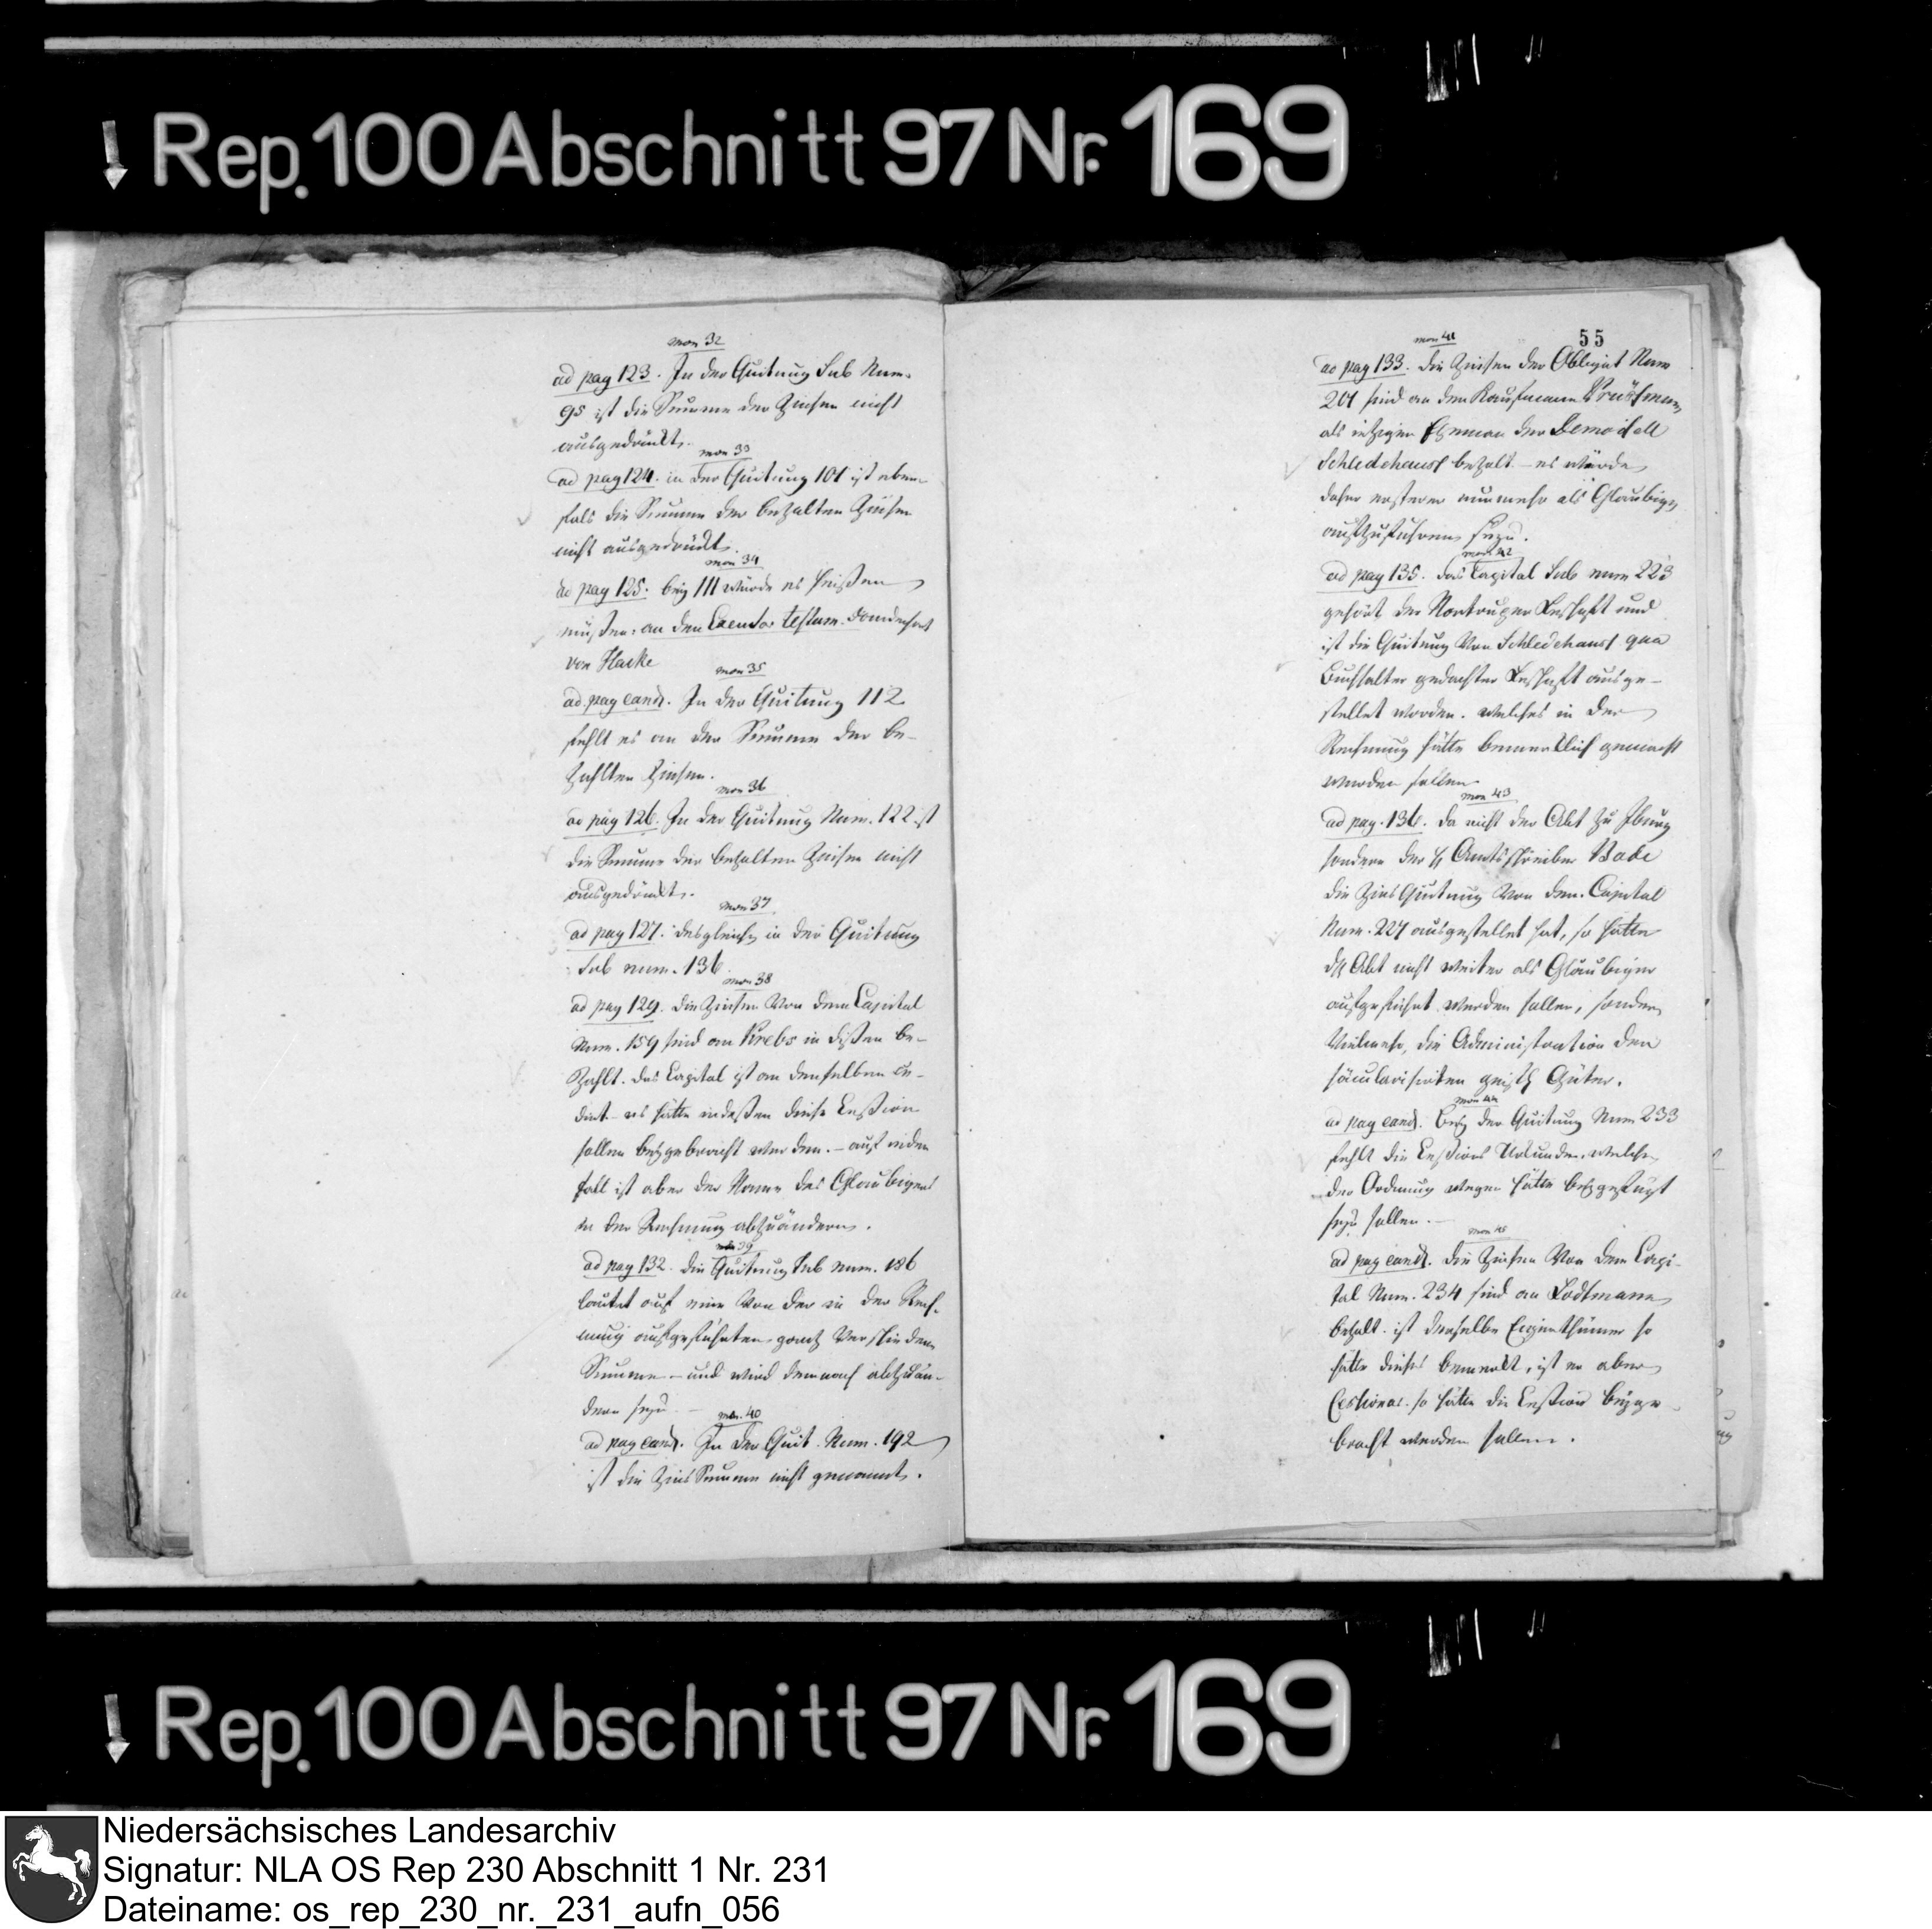 Rep. 100 Abschnitt 97 Nr. 169
mon 32
ad pag 123. In der Quitung Sub Num.
95 ist die Summe der Zinsen nicht
ausgedrückt.
mon 33
ad pag 124. in der Quitung 101 ist eben
fals die Summe der bezalten Zinsen
nicht ausgedrückt.
mon 34
ad pag 125. bey 111 würde es heißen
müßen: an den Executor testam. Domdechant
von Hacke
mon 35
ad pag eand. In der Quitung 112
fehlt es an der Summe der be-
zahlten Zinsen.
mon 36
ad pag 126. In der Quitung Num. 122 ist
die Summe der bezalten Zinsen nicht
ausgedrückt.
mon 37
ad pag 127. desgleichen in der Quitung
Sub num. 136
mon 38
ad pag 129. die Zinsen von dem Capital
Num. 159 sind an Krebs in Dißen be-
zahlt. das Capital ist an denselben ce-
dirt es hätte indeßen diese Ceßion
sollen beygebracht werden. – auf jeden
fall ist aber der Name des Glaubigers
in der Rechnung abzuändern.
mon 39
ad pag 132. die Quitung Sub num. 186
lautet auf eine von der in der Rech-
nung aufgeführten ganz verschiedene
Summe – und wird demnach abzuän-
dern seyn. –
mon. 40
ad pag eand. In der Quit. Num. 192
ist die Zins Summe nicht genannt.
55
mon 41
ad pag 133. die Zinsen der Obligat Num
201 sind an den Kaufmann
als jetzigen Ehemann der Demoisell
Schledehauss bezalt – es würde
daher ersterer nunmehr als Glaubiger
aufzuführen seyn.
mon 42
ad pag 135. das Capital Sub num 223
gehört der Nortruper
ist die Quitung von Schledehauss qua
Buchhalter gedachter ausge-
stellet worden. welches in der
Rechnung hätte bemerklich gemacht
werden sollen
mon 43
ad pag. 136. da nicht der Abt zu Iburg
sondern der H Amtsschreiber
die Zins Quitung von dem Capital
Num. 227 ausgestellet hat, so hätte
Abt nicht weiter als Gläubiger
aufgeführt werden sollen, sondern
vielmehr, die Administration der
säcularisirten geistl Güter.
mon 44
ad pag eand. Bey der Quitung Num 233
fehlt die Ceßions Urkunde, welche
der Ordnung wegen hätte beygefügt
seyn sollen. –
mon 45
ad pag eand. die Zinsen von dem Capi-
tal Num. 234 sind an Lodtmann
bezalt. ist derselbe Eigenthümer so
hätte dieses bemerkt, ist er aber
Cessionar. so hätte die Ceßion beyge-
bracht werden sollen.
Rep. 100 Abschnitt 97 Nr. 169
Niedersächsisches Landesarchiv
Signatur: NLA OS Rep 230 Abschnitt 1 Nr. 231
Dateiname: os_rep_230_nr._231_aufn_056